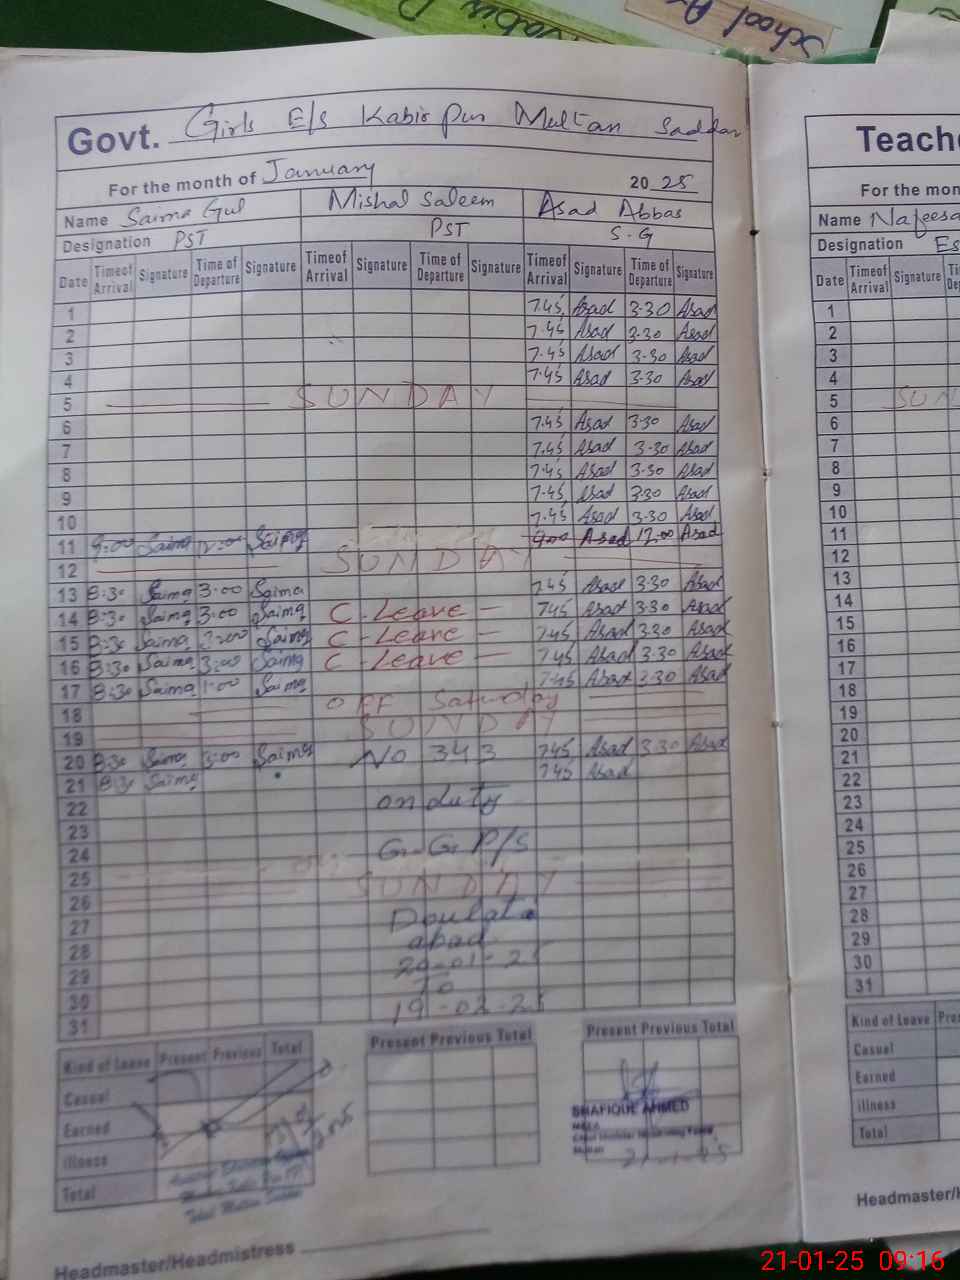 School
Govt. Girls E/s Kabir Pur Multan Saddar
For the month of January 2025
Name Saima Gul Mishal Saleem Asad Abbas
Designation PST PST S.G
Date Timeof Arrival Signature Time of Departure Signature Timeof Arrival Signature Time of Departure Signature Timeof Arrival Signature Time of Departure Signature
1 7.45 Asad 3.30 Asad
2 7.45 Asad 3.30 Asad
3 7.45 Asad 3-30 Asad
4 7.45 Asad 3-30 Asad
5 SUNDAY
6 7.45 Asad 3.30 Asad
7 7.45 Asad 3-30 Asad
8 7.45 Asad 3-30 Asad
9 7.45 Asad 3.30 Asad
10 7.45 Asad 3-30 Asad
11 9:00 Saima 12:00 Saima 9.00 Asad 12.00 Asad
12 SUNDAY
13 8:30 Saima 3:00 Saima 7.45 Asad 3.30 Asad
14 8:30 Saima 3:00 Saima C-Leave - 7.45 Asad 3.30 Asad
15 8:30 Saima 3:00 Saima C-Leave - 7.45 Asad 3.30 Asad
16 8:30 Saima 3:00 Saima C-Leave - 7.45 Asad 3.30 Asad
17 8:30 Saima 1:00 Saima 7.45 Asad 3.30 Asad
18 OFF Saturday
19 SUNDAY
20 8:30 Saima 3:00 Saima No 343 7.45 Asad 3.30 Asad
21 8:30 Saima 7.45 Asad
22 on duty
23
24 G.G. P/S
25
26 SUNDAY
27 Doulat
28 abad
29 20-01-25
30 To
31 19-02-25
Kind of Leave Present Previous Total Present Previous Total Present Previous Total
Casual
Earned
illness
Total
SHAFIQUE AHMED
MEA
Multan
21-1-25
Headmaster/Headmistress
Teache
For the mon
Name Nafeesa
Designation Es
Date Timeof Arrival Signature
1
2
3
4
5 SUN
6
7
8
9
10
11
12
13
14
15
16
17
18
19
20
21
22
23
24
25
26
27
28
29
30
31
Kind of Leave Pre
Casual
Earned
illness
Total
Headmaster/H
21-01-25 09:16